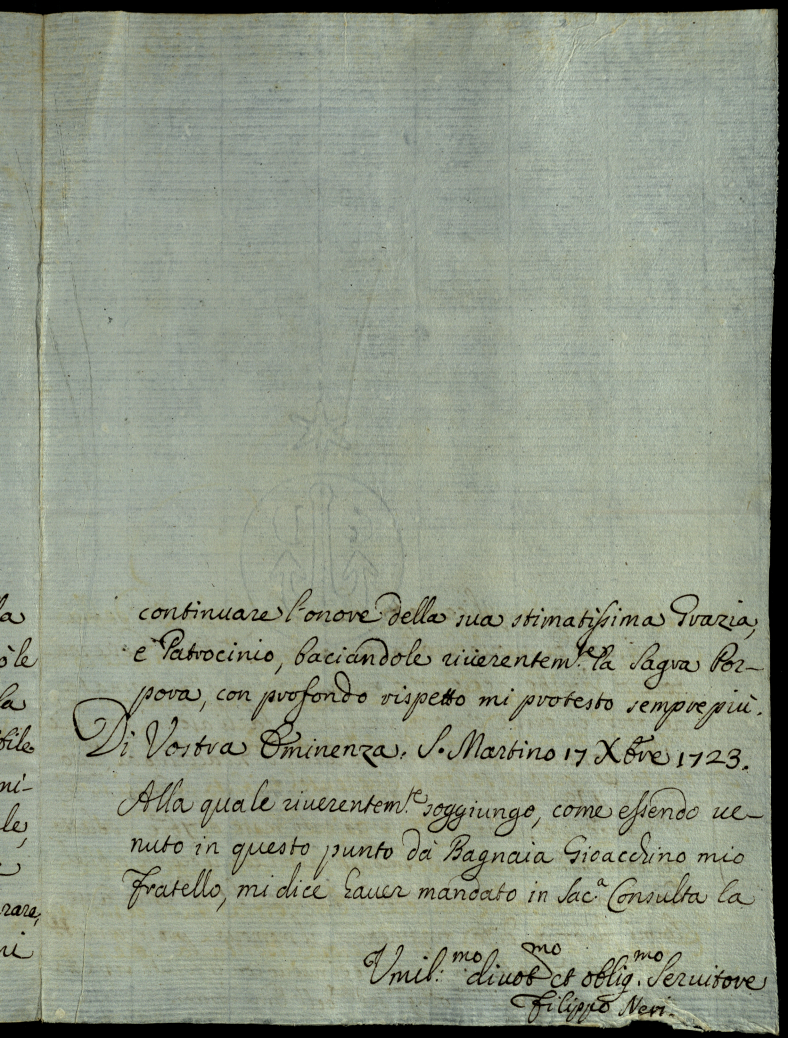 continuare l'onore della sua stimatissima Grazia,
e Patrocinio, baciandole riuerentem.te la Sagra Por-
pora, con profondo rispetto mi protesto sempre più.
Di Vostra Eminenza. S. Martino 17 Xbre 1723.
Alla quale riuerentem.te soggiungo, come essendo ue-
nuto in questo punto dà Bagnaia Gioacchino mio
Fratello, mi dice hauer mandato in Sac.a Consulta la
Vmil.mo diuot.mo et oblig.mo Seruitore
Filippo Neri.